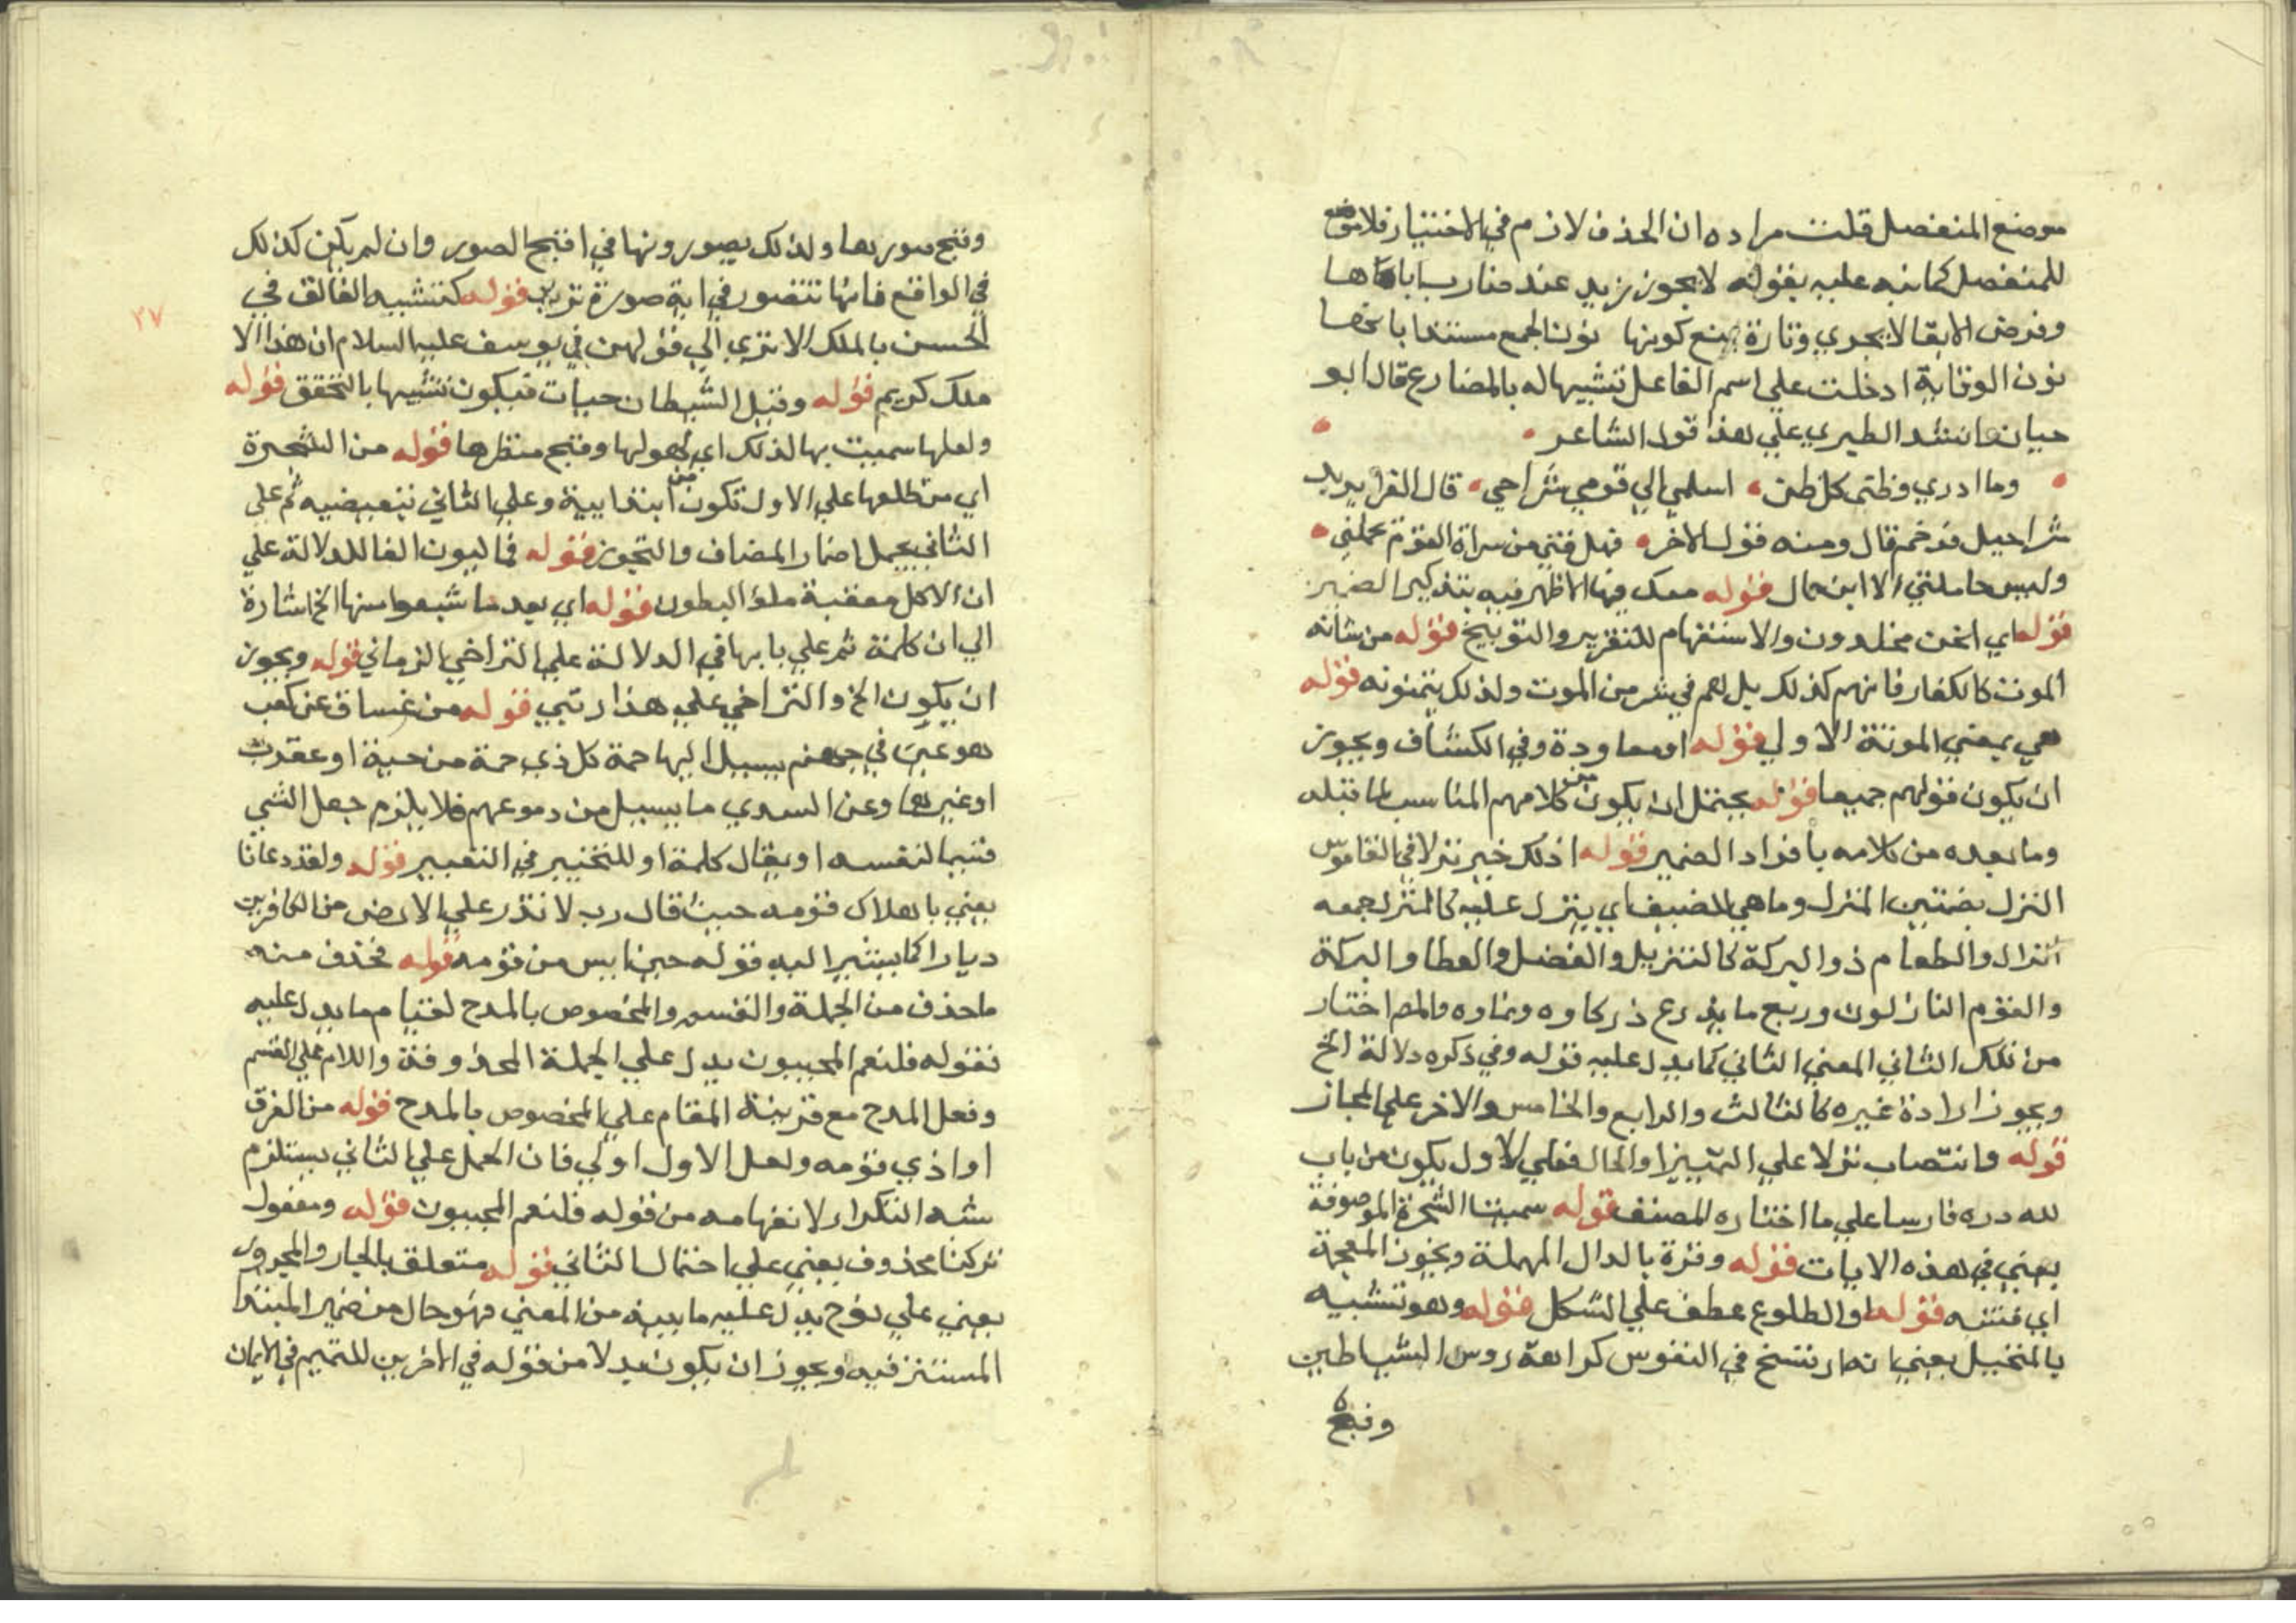 موضع المنفصل قلت مراده ان الحذف لازم في الاختيار فلا موضع
للمنفصل كما نبه عليه بقوله لا يجوز زيد عند ضارب اياها
وفرض الابقا لا يجدي وتارة بمنع كونها نون الجمع مستندا بانها
نون الوقاية ادخلت علي اسم الفاعل تشبيها له بالمضارع قال ابو
حيان وانشد الطبري علي هذا قول الشاعر
وما ادري وظني كل ظن اسلمي الي قومي شراحي قال الفرا يريد
شراحيل فرخم قال ومنه قول الاخر فهل فتي من سراة القوم يحملني
وليس حاملني الا ابن حمال قوله معك فيها الاظهر فيه بتذكير الضمير
قوله اي انحن مخلدون والاستفهام للتقرير والتوبيخ قوله من شانه
الموت كالكفار فانهم كذلك بل هم في شر من الموت ولذلك يتمنونه قوله
هي بمعني الموتة الاولي قوله او معاودة وفي الكشاف ويجوز
ان يكون قولهم جميعا قوله يحتمل ان يكون من كلامهم المناسب لما قبله
وما بعده من كلامه بافراد الضمير قوله اذلك خير نزلا في القاموس
النزل بضمتين المنزل وما هي للضيف اي ينزل عليه كالنزل جمعه
انزال والطعام ذو البركة كالنزيل والفضل والعطا والبركة
والقوم النازلون وريع ما يزرع ذ زكاوه ونماوه والمص اختار
من تلك الثاني المعني الثاني كما يدل عليه قوله وفي ذكره دلالة الخ
ويجوز ارادة غيره كالثالث والرابع والخامس والاخر علي المجاز
قوله وانتصاب نزلا علي التمييز او الحال فعلي الاول يكون من باب
لله دره فارسا علي ما اختاره المصنف قوله سميت الشجرة الموصوفة
يعني في هذه الايات قوله وقزة بالدال المهملة ويجوز المعجمة
اي منتنه قوله او الطلوع عطف علي الشكل قوله وهو تشبيه
بالمتخيل يعني انه ارتسخ في النفوس كراهة روس الشياطين
وقبح
٢٧
وقبح صورها ولذلك يصورونها في اقبح الصور وان لم يكن كذلك
في الواقع فانها تتصور في اية صورة تريد قوله كتشبيه الفائق في
الحسن بالملك الا تري الي قولهن في يوسف عليه السلام ان هذا الا
ملك كريم قوله وقيل الشيطان حيات فيكون تشبيها بالتحقق قوله
ولعلها سميت بها لذلك اي لهولها وقبح منظرها قوله من الشجرة
اي من طلعها علي الاول تكون من ابتدايية وعلي الثاني تبعيضيه ثم علي
الثاني يحمل اضمار المضاف والتجوز قوله فماليون الفا للدلالة علي
ان الاكل معقبة ملؤ البطون قوله اي بعد ما شبعوا منها الخ اشارة
الي ان كلمة ثم علي بابها في الدلالة علي التراخي الزماني قوله ويجوز
ان يكون الخ والتراخي علي هذا رتبي قوله من غساق عن كعب
هو عين في جهنم يسيل اليها حمة كل ذي حمة من حية او عقرب
او غيرها وعن السدي ما يسيل من دموعهم فلا يلزم جعل الشي
قسيما لنفسه او يقال كلمة او للتخيير في التعبير قوله ولقد دعانا
يعني باهلاك قومه حيث قال رب لا تذر علي الارض من الكافرين
ديارا كما يشير اليه قوله حين ايس من قومه قوله فحذف منه
ما حذف من الجملة والقسم والمخصوص بالمدح لقيام ما يدل عليه
فقوله فلنعم المجيبون يدل علي الجملة المحذوفة واللام علي القسم
وفعل المدح مع قرينة المقام علي المخصوص بالمدح قوله من الغرق
او اذي قومه ولعل الاول اولي فان الحمل علي الثاني يستلزم
شبه التكرار لانفهامه من قوله فلنعم المجيبون قوله ومفعول
تركنا محذوف يعني علي احتمال الثاني قوله متعلق بالجار والمجرور
يعني علي نوح يدل عليه ما بينه من المعني فهو حال من ضمير المبتدا
المستتر فيه ويجوز ان يكون بدلا من قوله في الاخرين للتميم في الايمان